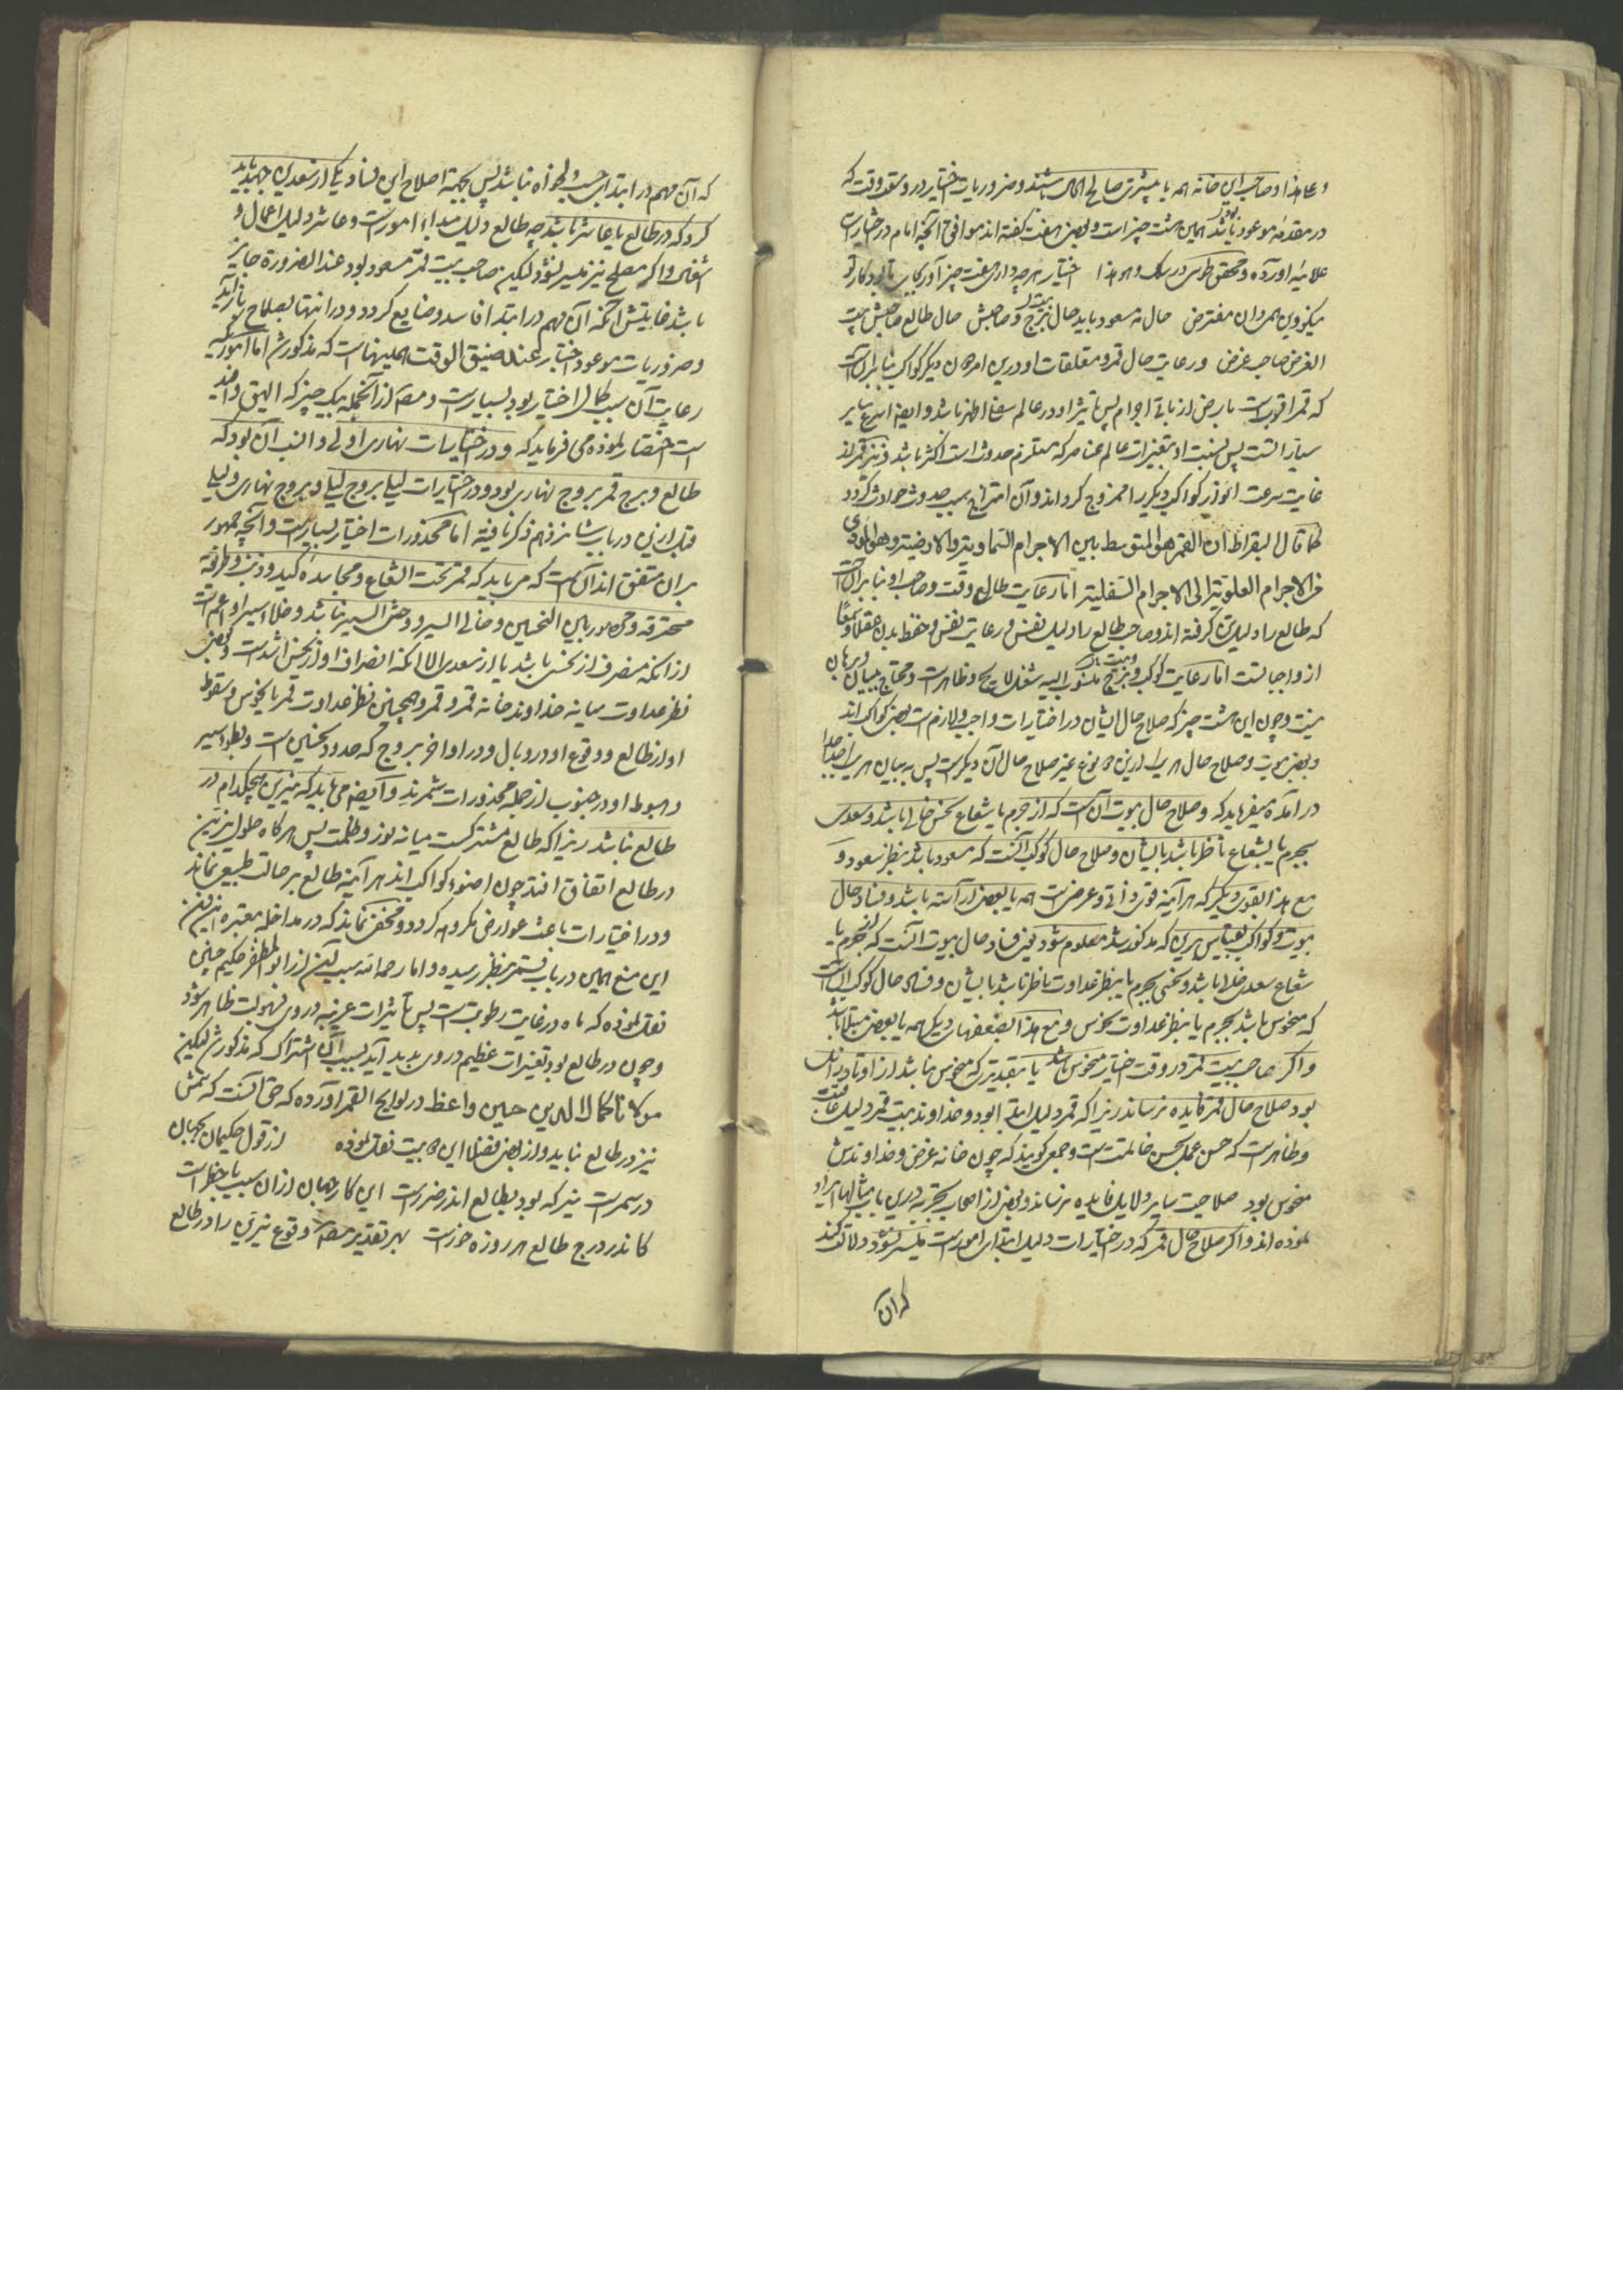 و عاهذا و صاحب این خانه همه یا بیشتری صالح الحال باشند و ضروریات اختیار در وسعت وقت که
در مقدمه موعود بود باشد همین هشت چیز است و بعضی هفت گفته اند موافق آنچه امام در اختیارات
علائیه آورده و محقق طوسی در سلک و هو هذا اختیار هرچه داری هفت چیز آور بجای تا بود کار تو
میکزوین همروان مفترض حال مه مسعود باید حال برج و صاحبش حال طالع صاحبش بیت
الغرض صاحب غرض و رعایت حال قمر و متعلقات او درین امر همان دیگر کواکب بنابر آنست
که قمر اقربست بارض از باقی اجرام پس تأثیر او در عالم سفلی اظهر باشد و ایضا اسرع سایر
سیاراتست پس نسبت او بتغیرات عالم عناصر که مستلزم حدوث است اکثر باشد و نیز قمر از
غایت سرعت انوار کواکب دیگر را ممزوج کرداند و آن امتزاج سبب حدوث حوادث کردد
کما قال البقراط ان القمر هو المتوسط بین الاجرام السماویة والارضیة وهو المؤدی
من الاجرام العلویة الی الاجرام السفلیة اما رعایت طالع وقت و صاحب او بنابر آنست
که طالع را دلیل تن کرفته اند و صاحب طالع را دلیل نفس و رعایت نفس و حفظ بدن عقلا و سمعا
از واجباتست اما رعایت کوکب و برج منسوب الیه شغل لایح و ظاهرست و محتاج ببیان و برهان
نیست و چون این هشت چیز که صلاح حال ایشان در اختیارات واجب و لازم است بعضی کواکب اند
و بعضی بیوت و صلاح حال هر یک ازین دو نوع غیر صلاح حال آن دیکرست پس به بیان هر یک جدا جدا
در آمده میفرماید که و صلاح حال بیوت آن است که از جرم یا شعاع نحس خالی باشد و سعدی
بجرم یا بشعاع ناظر باشد بایشان و صلاح حال کوکب آنست که مسعود باشد بنظر سعود و
مع هذا بقوی دیگر که هر آینه قوتی ذاتی و عرضی است همه یا بعضی آراسته باشد و فساد حال
بیوت و کواکب بقیاس برین که مذکور شد معلوم شود یعنی فساد حال بیوت آنست که از جرم یا
شعاع سعدی خالی باشد و نحسی بجرم یا بنظر عداوت ناظر باشد بایشان و فساد حال کوکب آن است
که منحوس باشد بجرم یا بنظر عداوت نحوس و مع هذا بضعفهای دیگر همه یا بعضی مبتلا باشد
و اگر صاحب بیت قمر در وقت اختیار منحوس باشد یا بتقدیری که منحوس نباشد از اوتاد زایل
بود صلاح حال قمر فایده نرساند زیرا که قمر دلیل ابتدا بود و خداوند بیت قمر دلیل عاقبت
و ظاهرست که حسن عمل بحسن خاتمتست و جمعی کویند که چون خانه غرض و خداوندش
منحوس بود صلاحیت سایر دلایل فایده نرساند و بعضی از اصحاب تجربه درین باب مثالها ایراد
نموده اند و اگر صلاح حال قمر که در اختیارات دلیل ابتدای امورست میسر نشود دلالت کند
که آن
که آن مهم در ابتدا بر حسب دلخواه نباشد پس بجهة اصلاح این فساد یکی از سعدین جهد باید
کرد که در طالع یا عاشر باشد چه طالع دلیل مبداء امورست و عاشر دلیل اعمال و
اشغال و اگر مصلح نیز میسر نشود لیکن صاحب بیت قمر مسعود بود عند الضرورة جایز
باشد غایتش آنکه آن مهم در ابتدا فاسد و ضایع کردد و در انتها بصلاح باز آید
و ضروریات موعود اختیار عند ضیق الوقت همینهاست که مذکور شد اما اموری که
رعایت آن سبب کمال اختیار بود بسیارست و مصنف از آنجمله بیک چیز که الیق و
است اختصار نموده می فرماید که و در اختیارات نهاری اولی و انسب آن بود که
طالع و برج قمر بروج نهاری بود و در اختیارات لیلی بروج لیلی و بروج نهاری و لیلی
قبل ازین در باب شانزدهم ذکر یافته اما محذورات اختیار بسیارست و آنچه جمهور
بران متفق اند آن است که می باید که قمر تحت الشعاع و مجاسده کید و ذنب و طریقه
محترقه و محصور بین النحسین و خالی السیر و وحشی السیر نباشد و خلاء سیر او اعم است
از آنکه منصرف از نحس باشد یا از سعدین الا آنکه انصراف او از نحس اشدست و بعضی
نظر عداوت میانه خداوند خانه قمر و قمر و همچنین نظر عداوت قمر با نحوس و سقوط
او از طالع و وقوع او در وبال و در اواخر بروج که حدود نحسین است و بطوء سیر
و هبوط او در جنوب از جمله محذورات شمرند و ایضا می باید که نیرین هیچکدام در
طالع نباشد زیرا که طالع مشترکست میانه نور و ظلمت پس هرکاه حلول نیرین
در طالع اتفاق افتد چون اضوء کواکب اند هر آینه طالع بر حالت طبیعی نماند
و در اختیارات باعث عوارض مکروهه کردد و مخفی نماند که در مداخل معتبره نیرین
این منع همین در باب قمر بنظر رسیده و امام رحمه الله سبب آن از ابو المظفر حکیم چنین
نقل نموده که ماه در غایت رطوبتست پس تأثیرات غریبه در وی بسهولت ظاهر شود
و چون در طالع بود تغیرات عظیم در وی پدید آید بسبب آن اشتراک که مذکور شد لیکن
مولانا کمال الدین حسین واعظ در لوایح القمر آورده که حق آنست که شمس
نیز در طالع نباید و از بعضی فضلا این دو بیت نقل نموده از قول حکیمان بجهان
در سمرست نیر که بود بطالع اندر ضررست این کار جهان ازان سبب با خطرست
کاندر درج طالع هر روزه خورست بهر تقدیر مصنف وقوع نیرین را در طالع